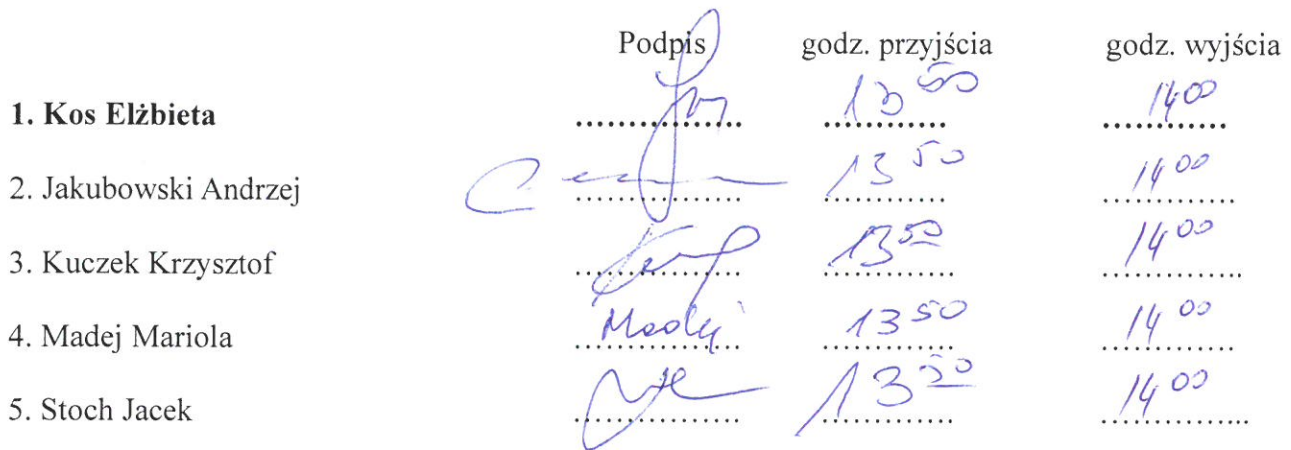 Podpis godz. przyjścia godz. wyjścia
1. Kos Elżbieta .................. 13 50 14 00
2. Jakubowski Andrzej .................. 13 50 14 00
3. Kuczek Krzysztof .................. 13 50 14 00
4. Madej Mariola Madej 13 50 14 00
5. Stoch Jacek .................. 13 50 14 00